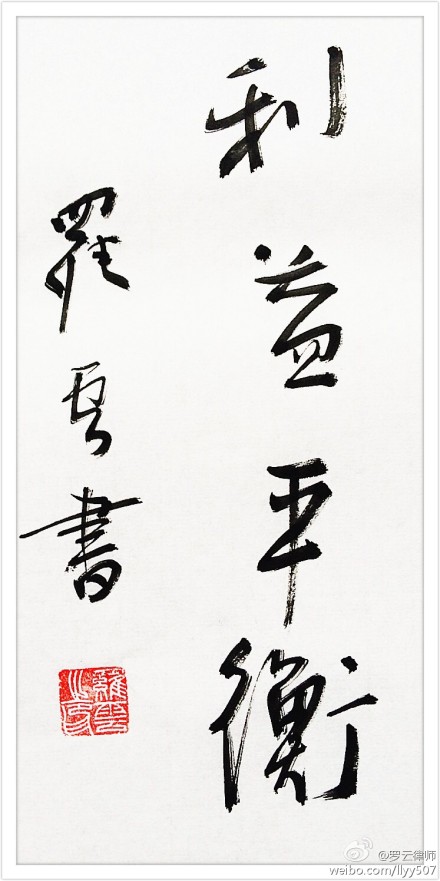 利益平衡
羅雲書
@罗云律师
weibo.com/llyy507